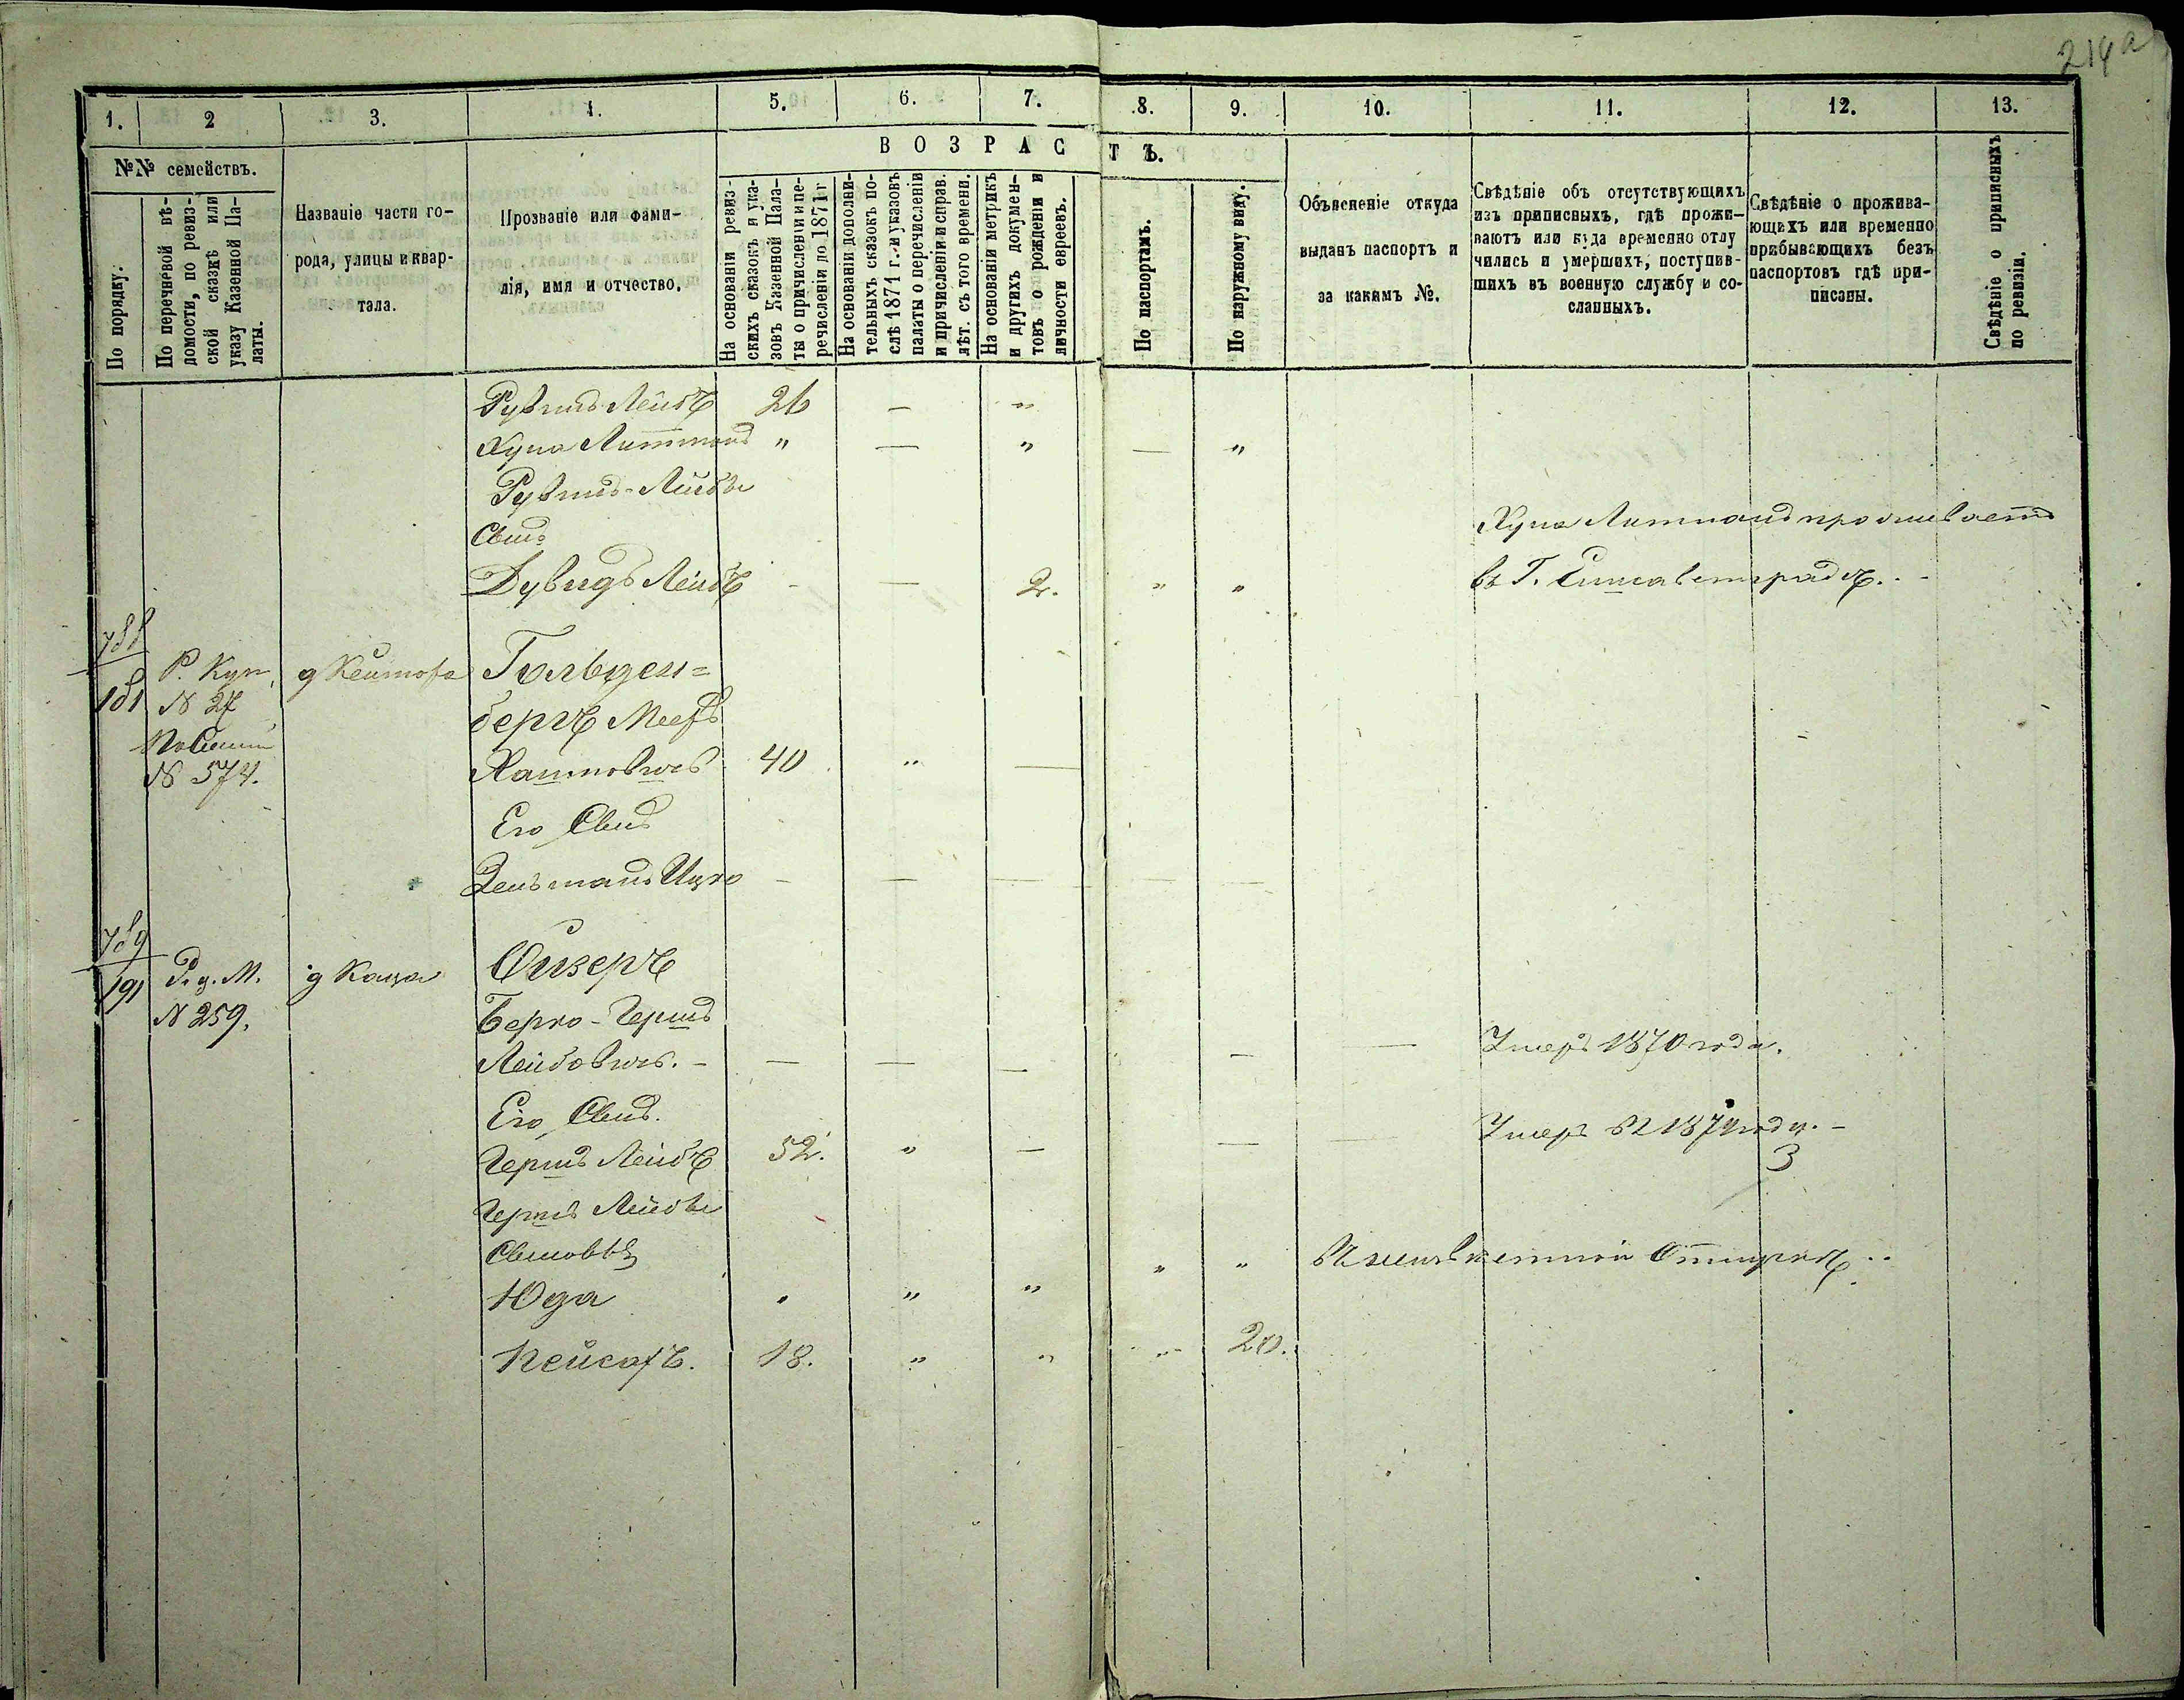 214а
1. 2 3. 4. 5. 6. 7. 8. 9. 10. 11. 12. 13.
№№ семействъ.
По порядку.
По перечневой вѣ-
домости, по ревиз-
ской сказкѣ или
указу Казенной Па-
латы.
Названіе части го-
рода, улицы и квар-
тала.
Прозваніе или фами-
лія, имя и отчество.
ВОЗРАСТЪ.
На основаніи ревиз-
скихъ сказокъ и ука-
зовъ Казенной Пала-
ты о причисленіи и пе-
речисленіи до 1871 г
На основаніи дополни-
тельныхъ сказокъ по-
слѣ 1871 г. и указовъ
палаты о перечисленіи
и причисленіи и справ.
лѣт. съ того времени.
На основаніи метрикъ
и другихъ докумен-
товъ о рожденіи и
личности евреевъ.
По паспортамъ.
По наружному виду.
Объясненіе откуда
выданъ паспортъ и
за какимъ №.
Свѣдѣніе объ отсутствующихъ
изъ приписныхъ, гдѣ прожи-
ваютъ или куда временно отлу
чились и умершихъ, поступив-
шихъ въ военную службу и со-
сланныхъ.
Свѣдѣніе о прожива-
ющихъ или временно
прибывающихъ безъ
паспортовъ гдѣ при-
писаны.
Свѣдѣніе о приписныхъ
по ревизіи.
Рувинъ Лейбъ 26 — „
Хуна Литманъ „ — „ — „
Рувинъ-Лейбы
Сынъ
Хуна Литманъ проживаетъ
Дувидъ Лейбъ - — 2. „ „ въ Г. Елисаветградѣ.
788
181 Р. Куп. Гольден=
N 27 бергъ Мееръ
N 574. Хаимовичъ 40 „ —
Его Сынъ
Зельманъ Ицко — — — — —
789
191 Р. д. М. д Каца Оизеръ
N 259. Берко-Гершъ
Лейбовичъ. — — — — — — Умеръ 1870 года.
Его Сынъ.
Гершъ Лейбъ 52. „ — — — Умеръ въ 1874 году. —
3
Гершъ Лейбы
Сыновья
Юда „ „ „ „ „
Пейсахъ. 18. „ „ „ 20.